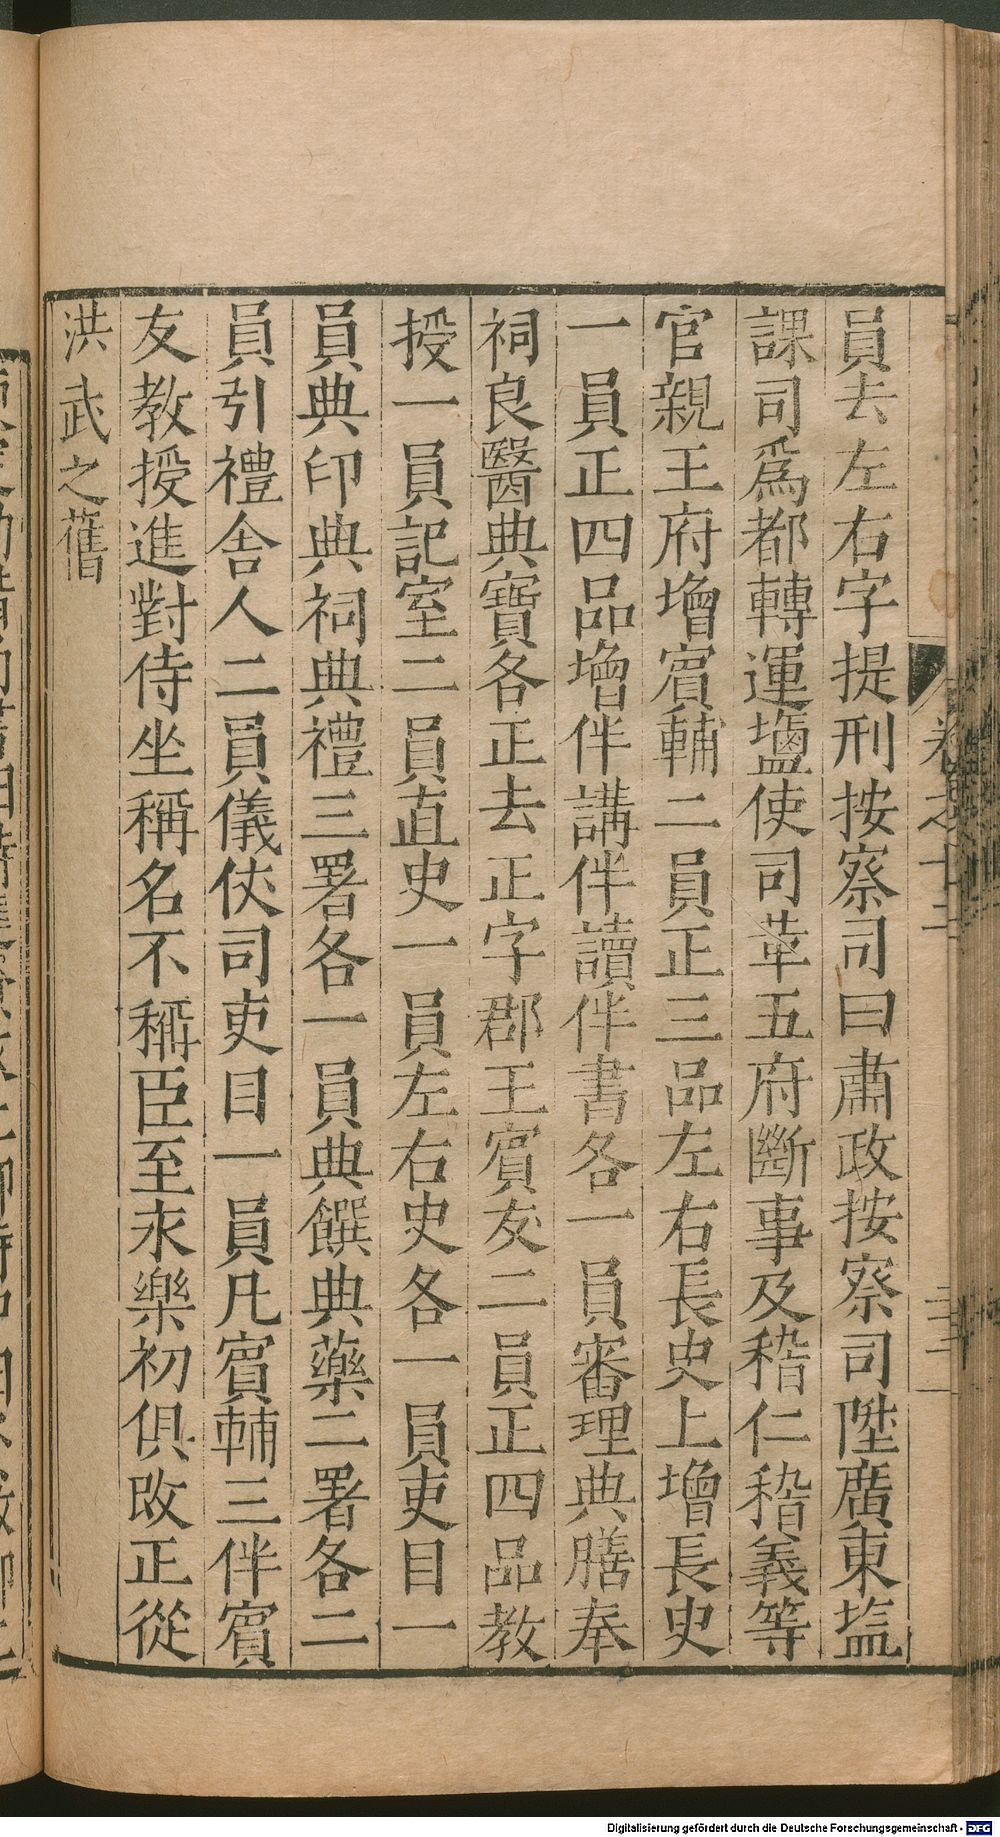 員去左右字提刑按察司曰肅政按察司陞廣東塩
課司爲都轉運塩使司革五府斷事及稽仁稽義等
官親王府增賔輔二員正三品左右長史上增長史
一員正四品增伴講伴讀伴書各一員審理典膳奉
祠良醫典寶各正去正字郡王賔友二員正四品教
授一員記室二員直史一員左右史各一員吏目一
員典印典祠典禮三署各一員典饌典藥二署各二
員引禮舍人二員儀仗司吏目一員凡賔輔三伴賔
友教授進對侍坐稱名不稱臣至永樂初俱改正從
洪武之舊
卷之十二
Digitalisierung gefördert durch die Deutsche Forschungsgemeinschaft - DFG